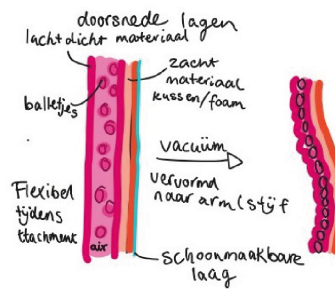 doorsnede lagen
lachtdicht materiaal
zacht
materiaal
kussen/foam
balletjes
vacuüm
vervormd
naar arm (stijf
Flexibel
tijdens
ttachment
air
schoonmaakbare
laag